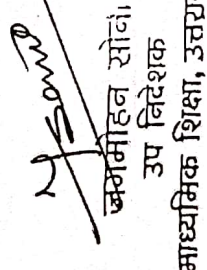 जगमोहन सोनी
उप निदेशक
माध्यमिक शिक्षा, उत्तरा